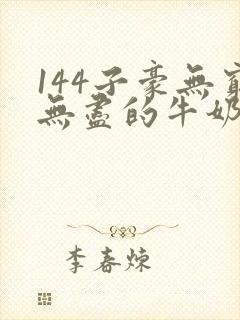 144子豪無窮
無盡的牛奶
李春煉